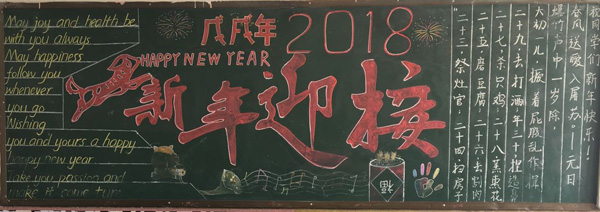 May joy and health be
with you always
May happiness
follow you
whenever
you go
Wishing
you and yours a happy
happy new year
take you passion and
make it come ture
戊戌年
2018
HAPPY NEW YEAR
新年迎接
福
祝同学们新年快乐！
爆竹声中一岁除，
春风送暖入屠苏。——元日
大初一儿，撅着屁股乱作揖
二十九，去打酒年三十捏造
二十七，杀只鸡，二十八蒸枣花
二十五，磨豆腐，二十六去割肉
二十三，祭灶官，二十四，扫房子